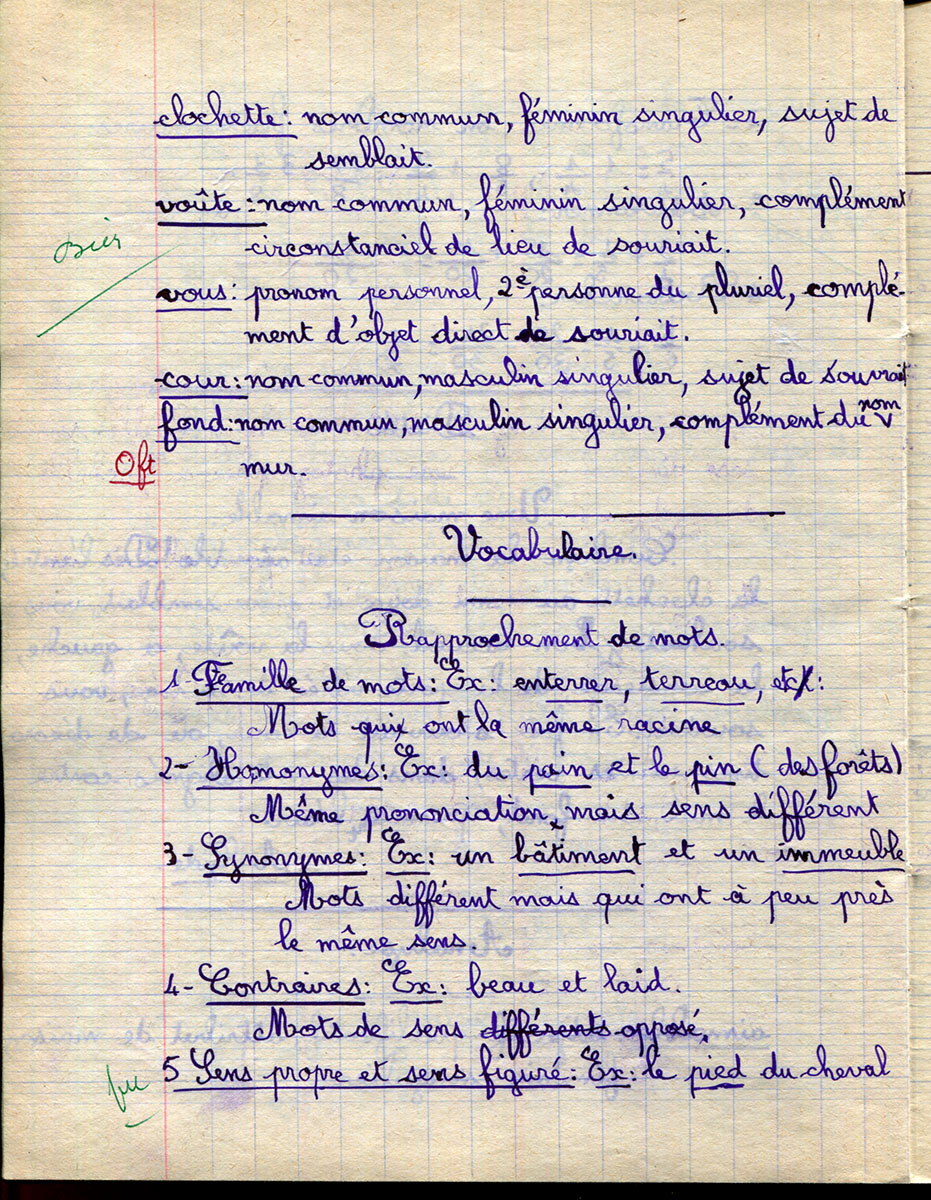 clochette: nom commun, féminin singulier, sujet de
semblait.
voûte: nom commun, féminin singulier, complément
circonstanciel de lieu de souriait.
Bien
vous: pronom personnel, 2è personne du pluriel, complé-
ment d'objet direct de souriait.
cour: nom commun, masculin singulier, sujet de souvrait
fond: nom commun, masculin singulier, complément du nom
mur.
Oft
Vocabulaire.
Rapprochement de mots.
1. Famille de mots: Ex: enterrer, terreau, etc:
Mots qui ont la même racine
2- Homonymes: Ex: du pain et le pin (des forêts)
Même prononciation, mais sens différent
3- Synonymes: Ex: un bâtiment et un immeuble
Mots différent mais qui ont à peu près
le même sens.
4- Contraires: Ex: beau et laid.
Mots de sens différents opposé.
5 Sens propre et sens figuré: Ex: le pied du cheval
fu